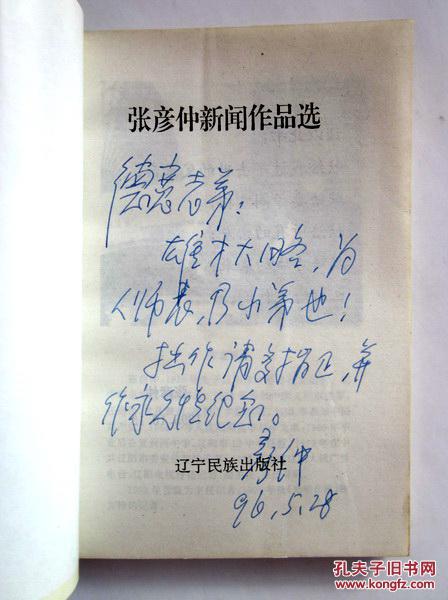 张彦仲新闻作品选
德慧老弟：
雄才大略，为
人师表，乃小弟也！
拙作请多指正，并
作永久性纪念。
彦仲
辽宁民族出版社
96.5.28
孔夫子旧书网